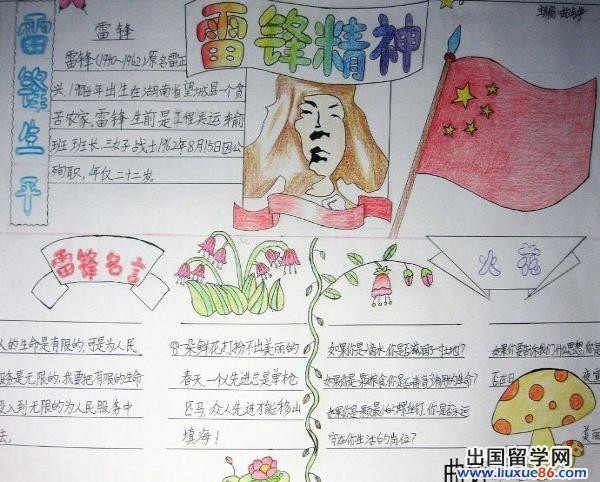 雷锋精神
雷锋生平
雷锋
雷锋(1940—1962)原名雷正
兴,1940年出生在湖南省望城县一个贫
苦农家、雷锋生前是工程兵运输
班班长、五好战士1962年8月15日因公
殉职,年仅二十二岁。
雷锋名言
人的生命是有限的,可是为人民
服务是无限的,我要把有限的生命
投入到无限的为人民服务中
去。
一朵鲜花打扮不出美丽的
春天一个人先进总是单枪
匹马,众人先进才能移山
填海!
火花
如果你是一滴水,你是否滋润了一寸土地?
如果你是一颗粮食,你是否哺育了有用的生命?
如果你是一颗最小的螺丝钉,你是否永远
守在你生活的岗位?
如果你要告诉我们什么思想,你是
否在日
美丽
出国留学网
www.liuxue86.com